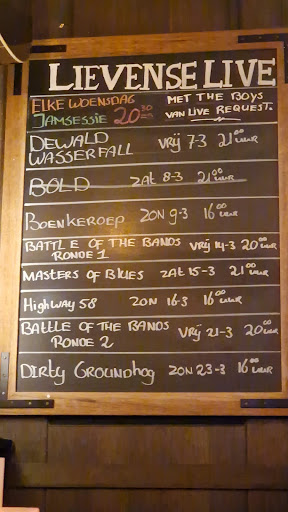 LIEVENSE LIVE
ELKE WOENSDAG MET THE BOYS
JAMSESSIE 20 30 VAN LIVE REQUEST.
DEWALD VRIJ 7-3 21 00 UUR
WASSERFALL
BOLD ZAT 8-3 21 00 UUR
BOENKEROEP ZON 9-3 16 00 UUR
BATTLE OF THE BANDS VRIJ 14-3 20 00 UUR
RONDE 1
MASTERS OF BLUES ZAT 15-3 21 00 UUR
HIGHWAY 58 ZON 16-3 16 00 UUR
BATTLE OF THE BANDS VRIJ 21-3 20 00 UUR
RONDE 2
DIRTY GROUNDHOG ZON 23-3 16 00 UUR